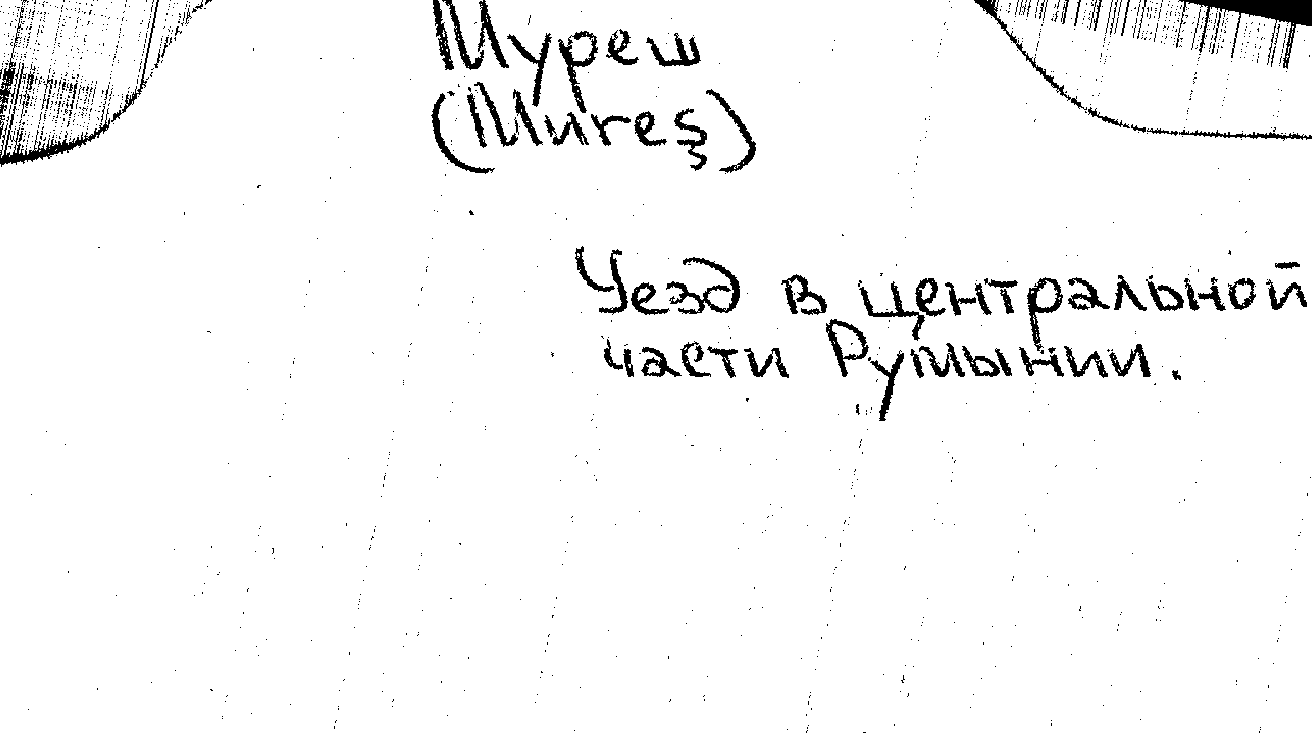 Муреш
(Mureș)
Уезд в центральной
части Румынии.